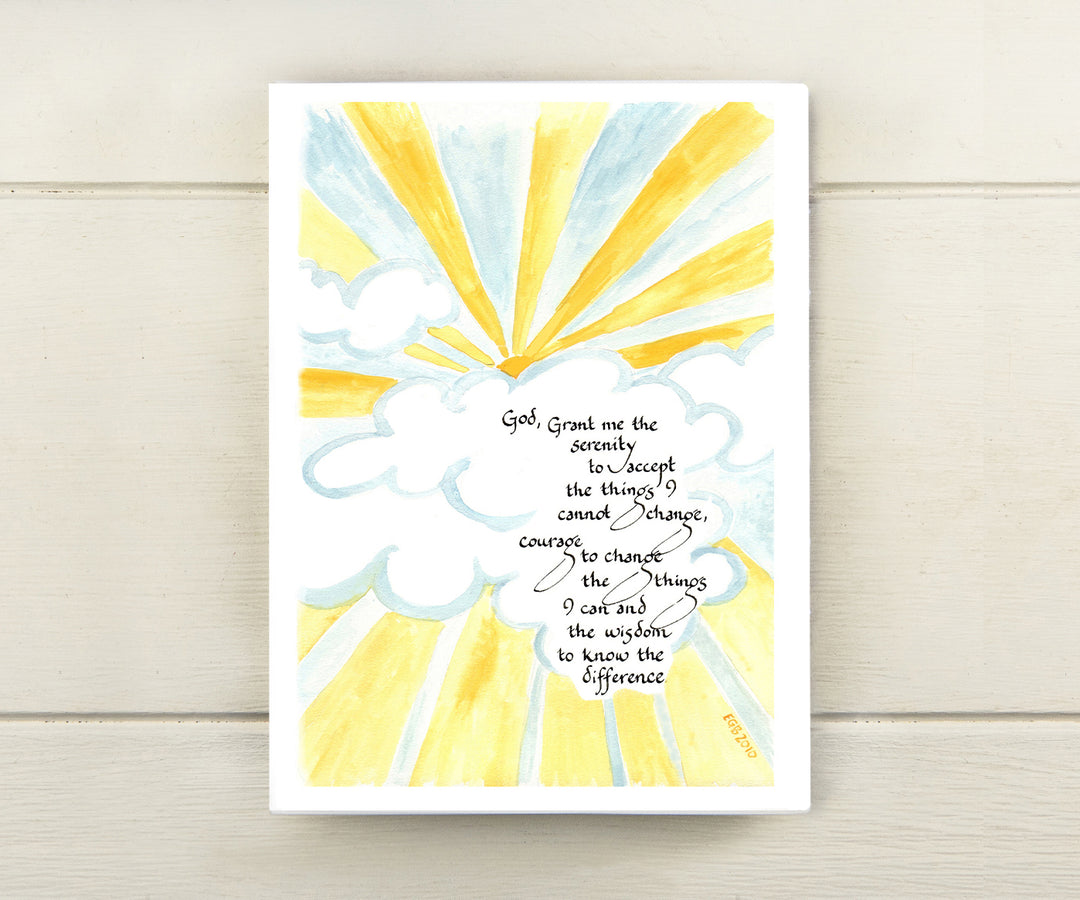 God, Grant me the
serenity
to accept
the things I
cannot change,
courage
to change
the things
I can and
the wisdom
to know the
difference
EGB 2010